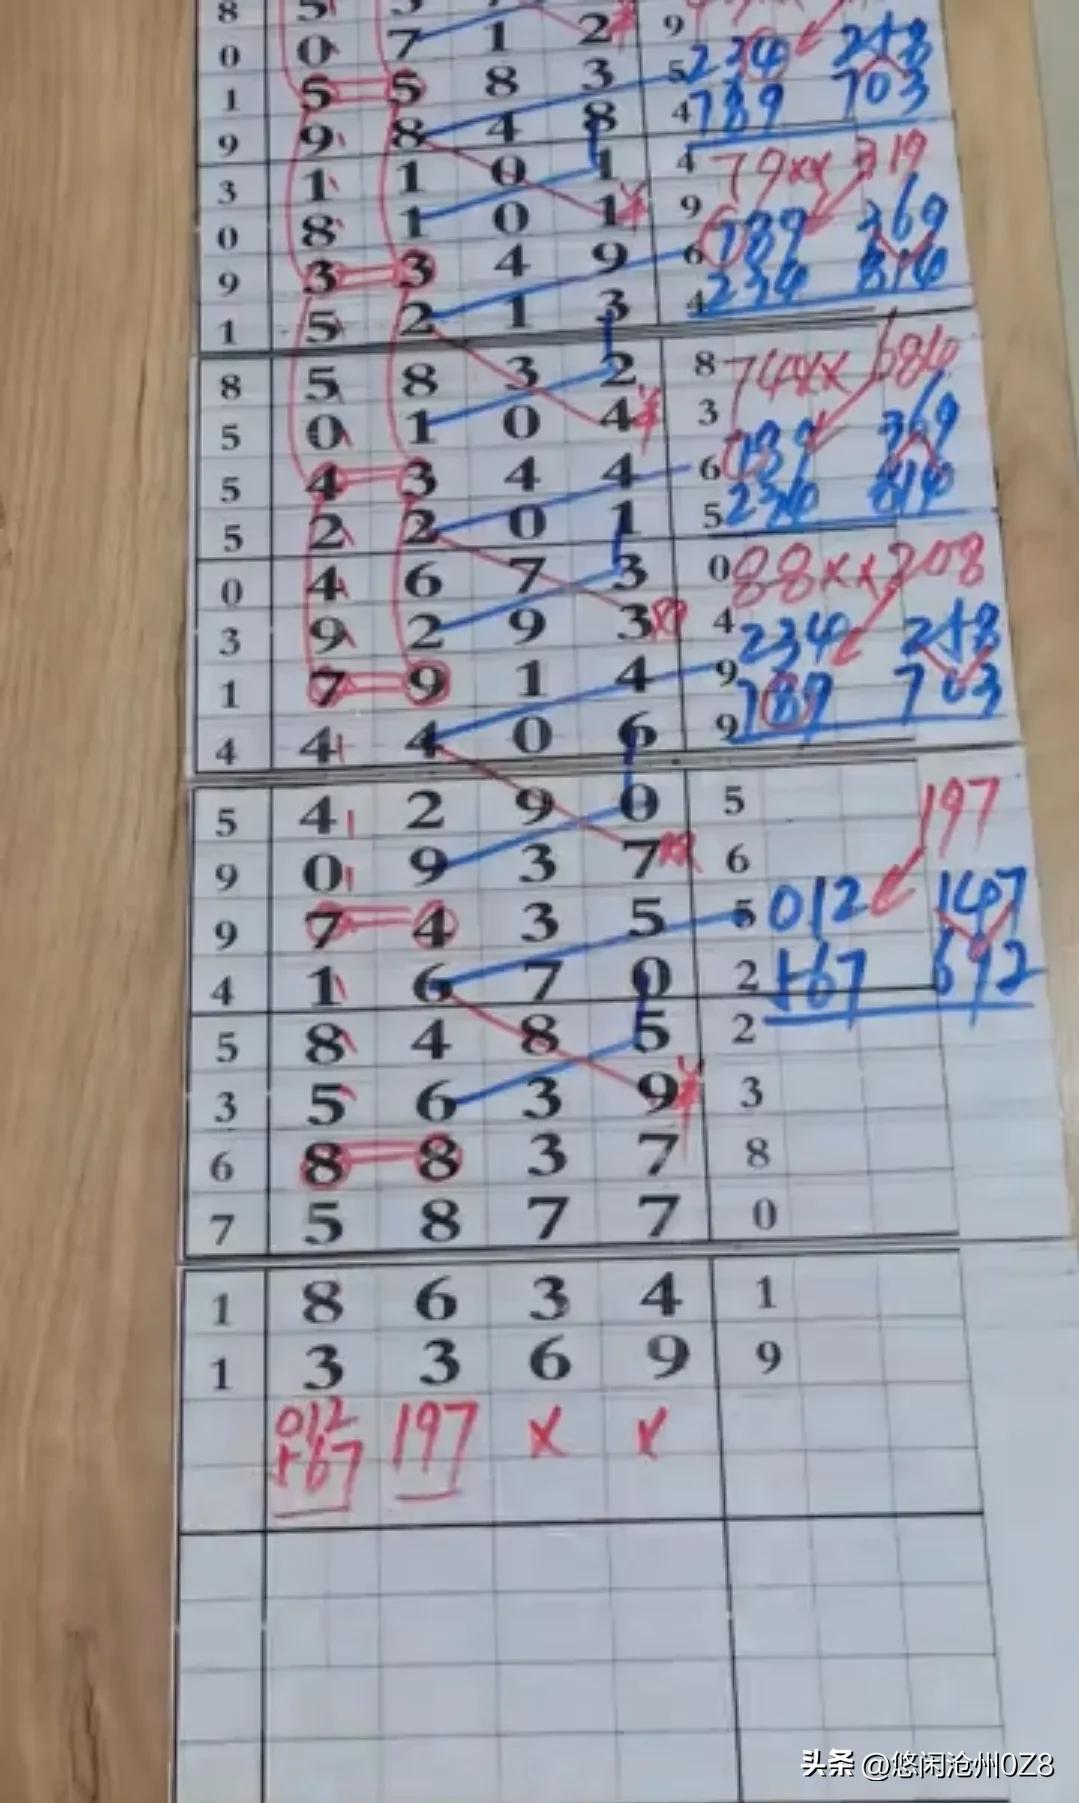 8 5
0 0 7 1 2 9 234 248
1 5 5 8 3 5 789 703
9 9 8 4 8 4
3 1 1 0 1 4 79xx 319
0 8 1 0 1 9 789 369
9 3 3 4 9 6 234 814
1 5 2 1 3 4
8 5 8 3 2 8 74xx 684
5 0 1 0 4 3 789 369
5 4 3 4 4 6 234 814
5 2 2 0 1 5
0 4 6 7 3 0 88xx 208
3 9 2 9 3 4 234 248
1 7 9 1 4 9 789 703
4 4 4 0 6 9
5 4 2 9 0 5 197
9 0 9 3 7 6
9 7 4 3 5 5 012 147
4 1 6 7 0 2 +67 692
5 8 4 8 5 2
3 5 6 3 9 3
6 8 8 3 7 8
7 5 8 7 7 0
1 8 6 3 4 1
1 3 3 6 9 9
012 197 x x
+67
头条 @悠闲沧州0Z8